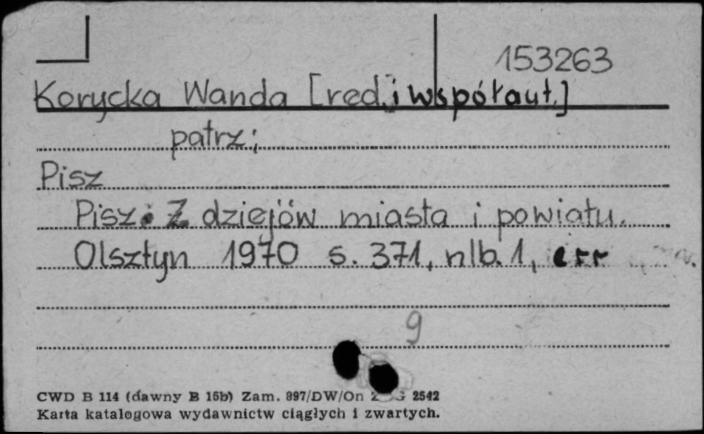 153263
Korycka Wanda [red. i współaut.]
patrz:
Pisz
Pisz. Z dziejów miasta i powiatu.
Olsztyn 1970 s. 371, nlb. 1, err
9
CWD B 114 (dawny B 15b) Zam. 897/DW/On 2542
Karta katalogowa wydawnictw ciągłych i zwartych.